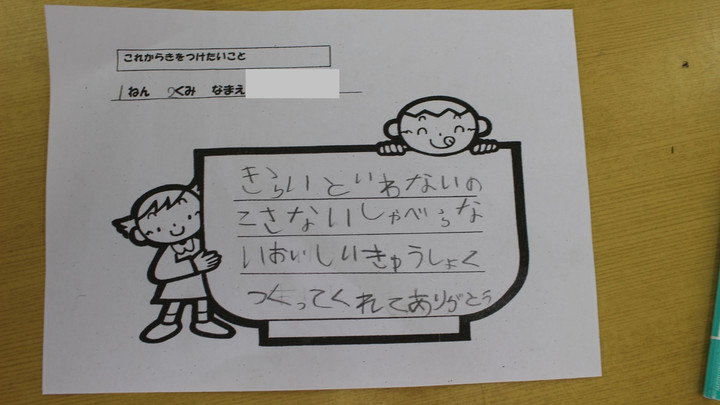 これからきをつけたいこと
1ねん 2くみ なまえ
きらいといわないの
こさないしゃべらな
いおいしいきゅうしょく
つくってくれてありがとう